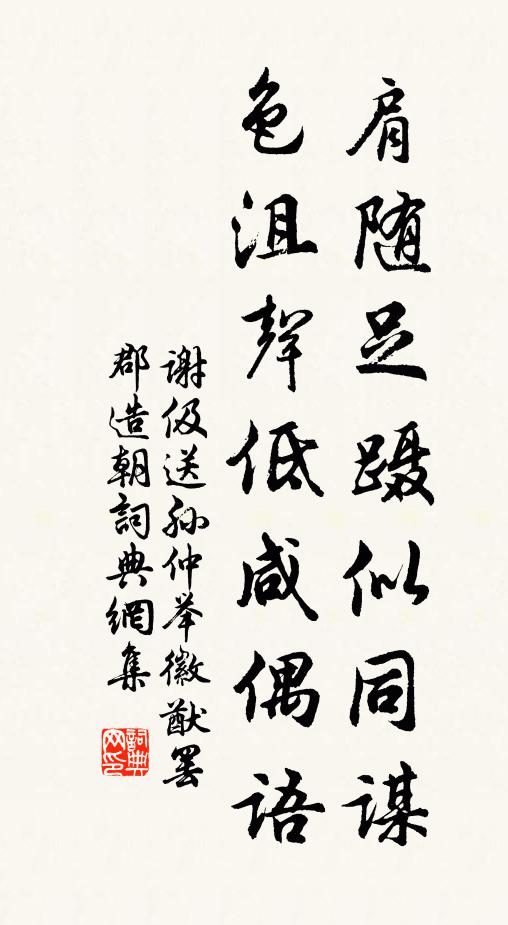 肩随足蹑似同谋
色沮聲低咸偶语
谢伋送孙仲举徽猷罢
郡造朝詞典網集
詞典网印